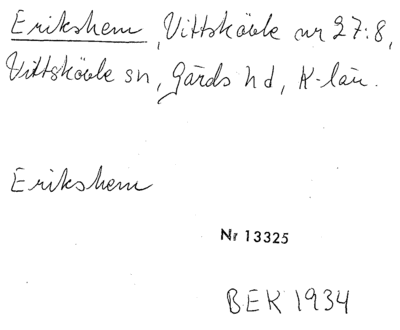 Erikshem, Vittskövle nr 27:8,
Vittskövle sn, Gärds hd, K-län.
Erikshem
Nr 13325
BEK 1934